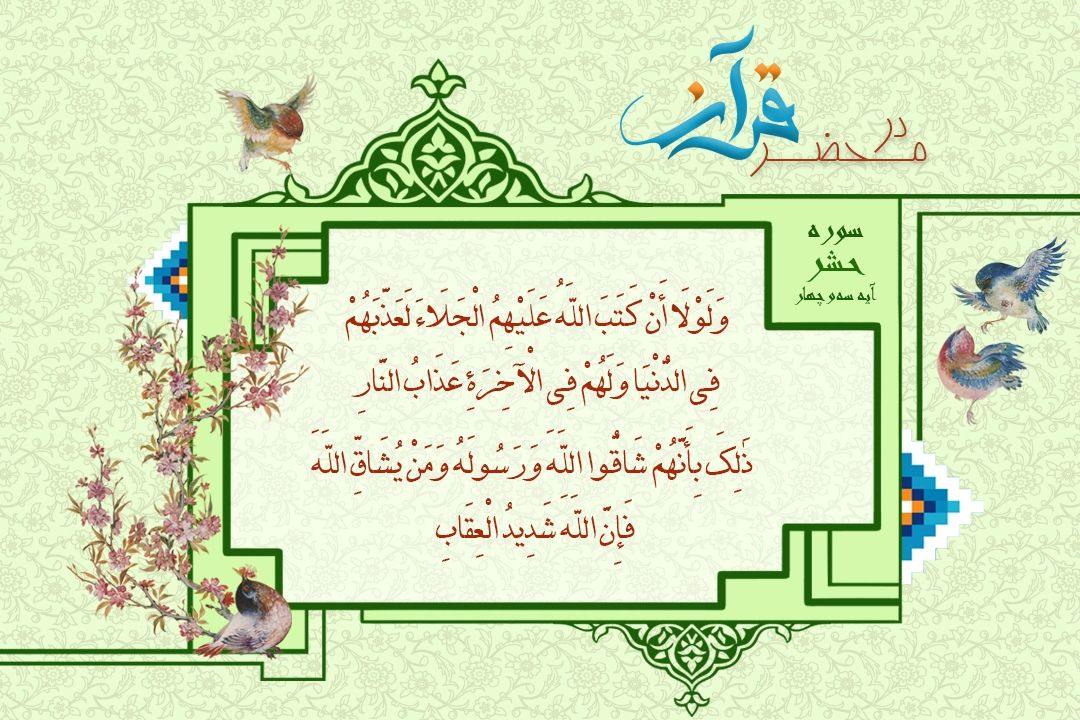 در محضر قرآن
سوره
حشر
آیه سه و چهار
وَلَوْلَا أَنْ كَتَبَ اللَّهُ عَلَيْهِمُ الْجَلَاءَ لَعَذَّبَهُمْ
فِی الدُّنْيَا وَلَهُمْ فِی الْآخِرَةِ عَذَابُ النَّارِ
ذَٰلِکَ بِأَنَّهُمْ شَاقُّوا اللَّهَ وَرَسُولَهُ وَمَنْ يُشَاقِّ اللَّهَ
فَإِنَّ اللَّهَ شَدِيدُ الْعِقَابِ